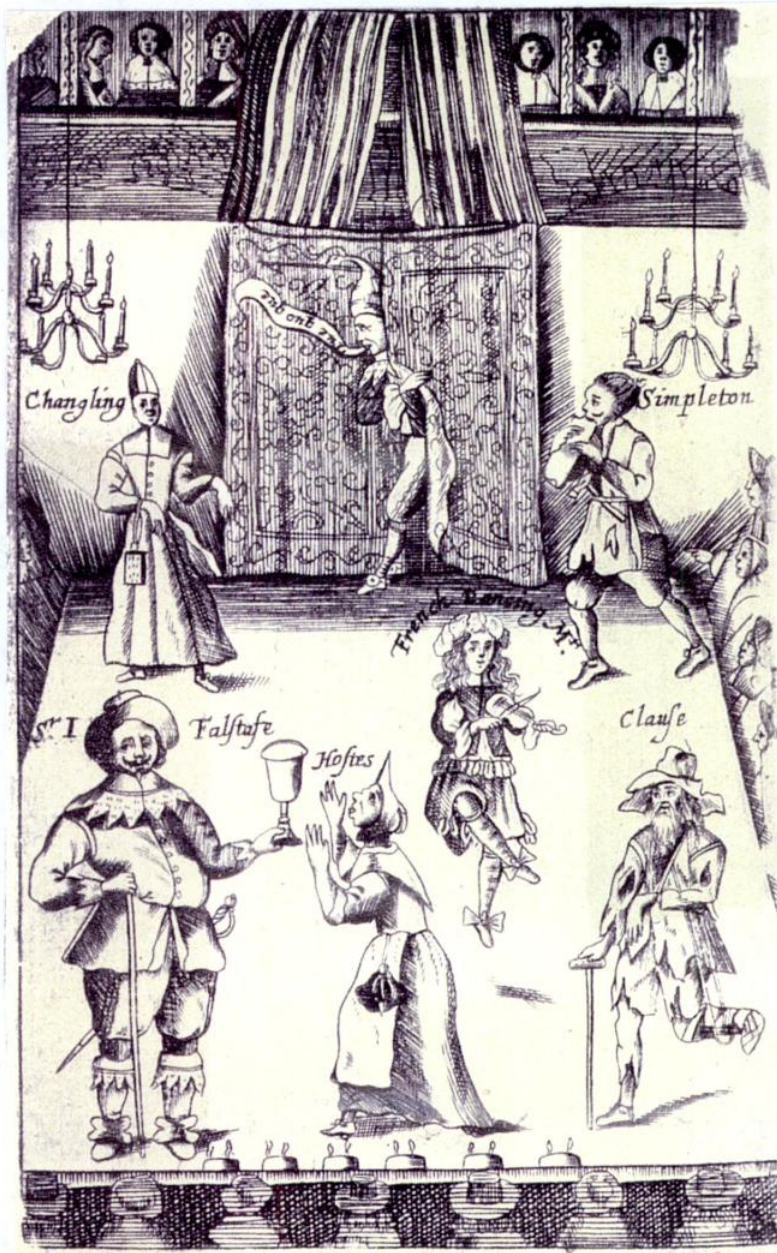 Tu quo que
Changling
Simpleton
French Dancing Mr.
Sr I Falstafe
Hostes
Clause